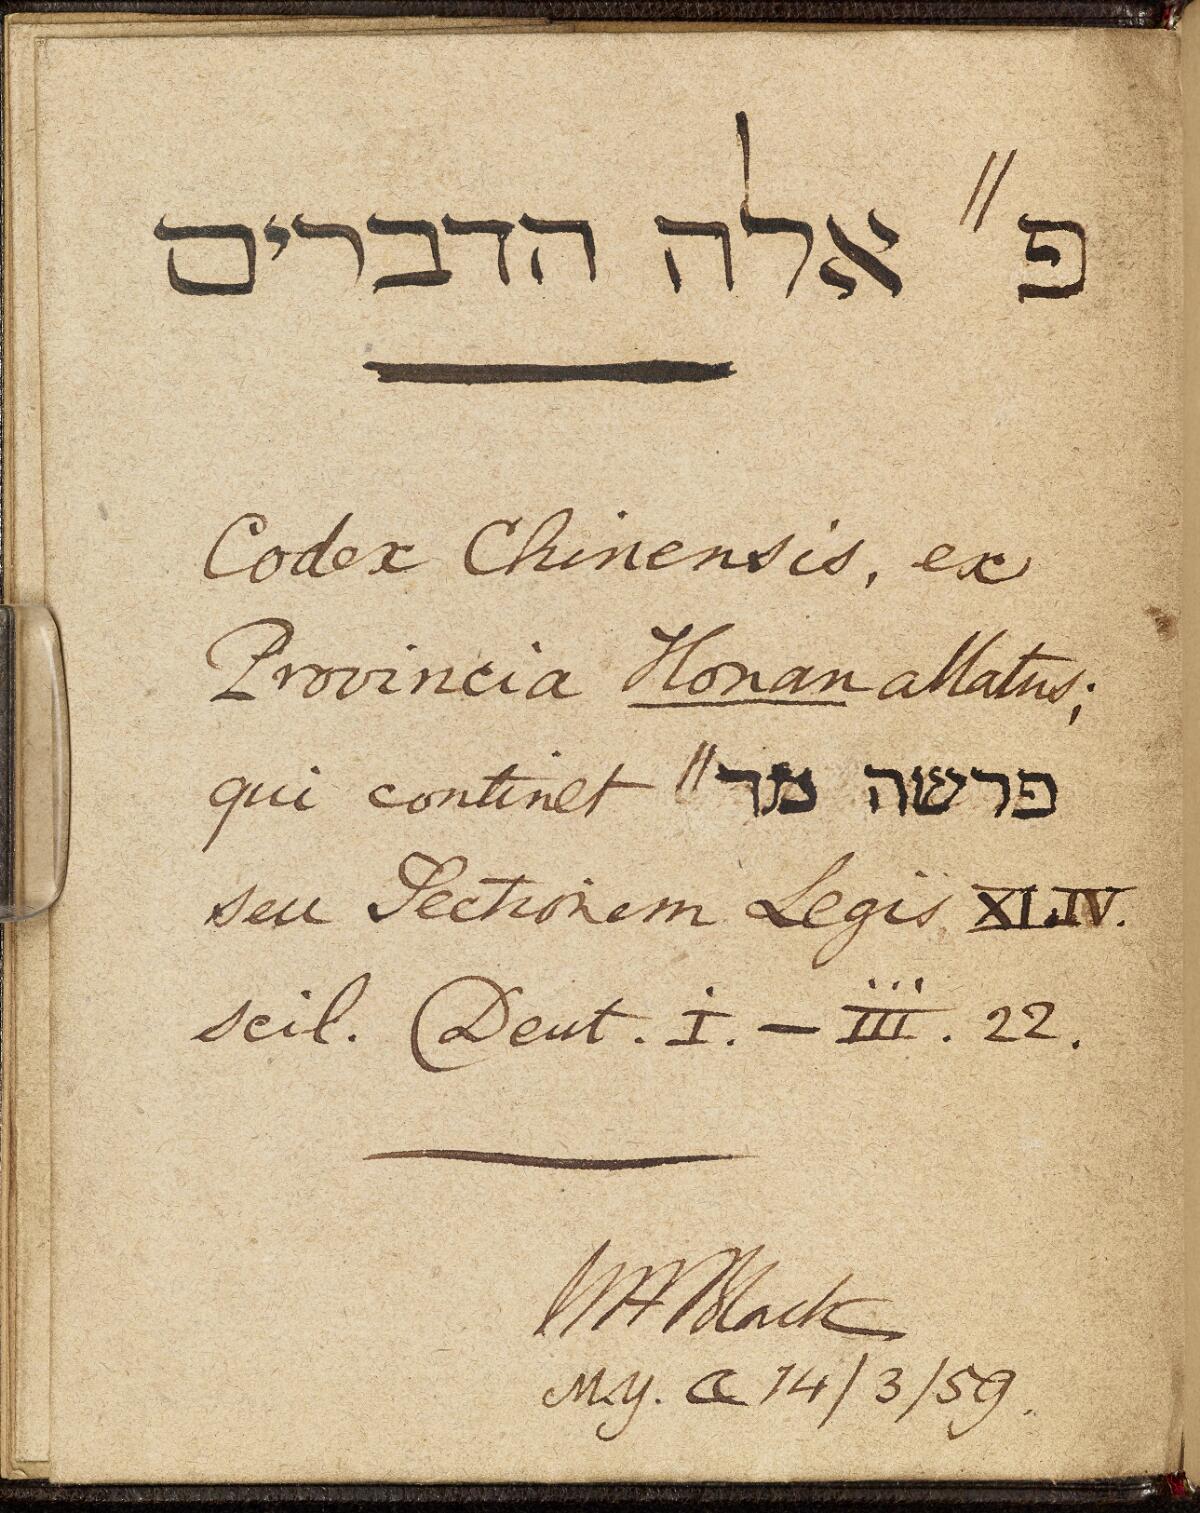 פ״ אלה הדברים
Codex Chinensis, ex
Provincia Honan allatus;
qui continet פרשה מד״
seu Sectionem Legis XLIV.
scil. Deut. I. — III. 22.
WHBlack
14/3/59.